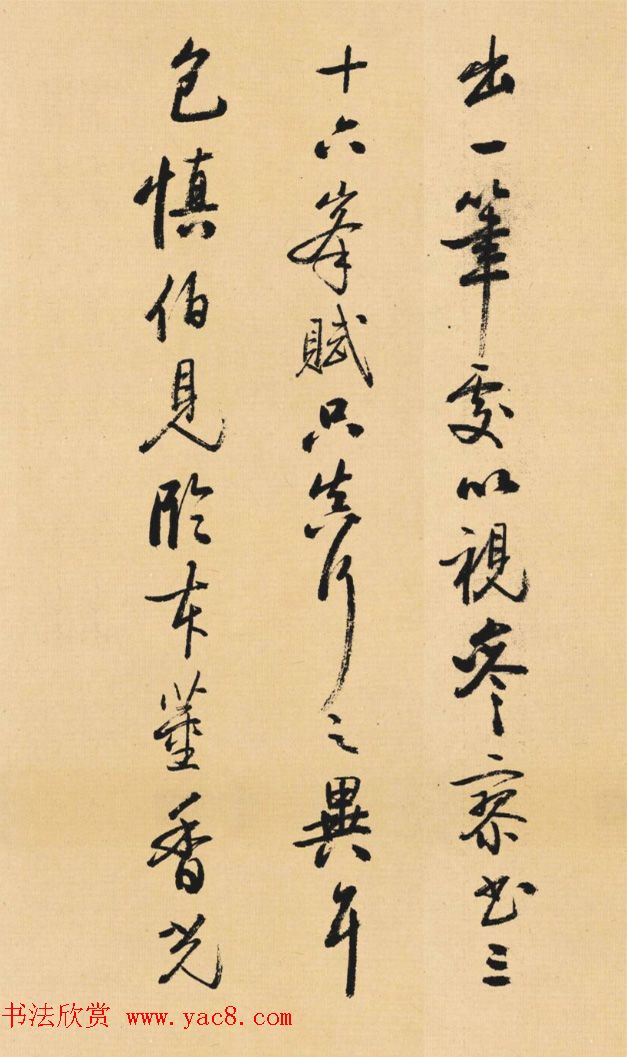 出一筆處以視參寥书三
十六峯賦只真行之異耳
包慎伯見臨本董香光
书法欣赏 www.yac8.com